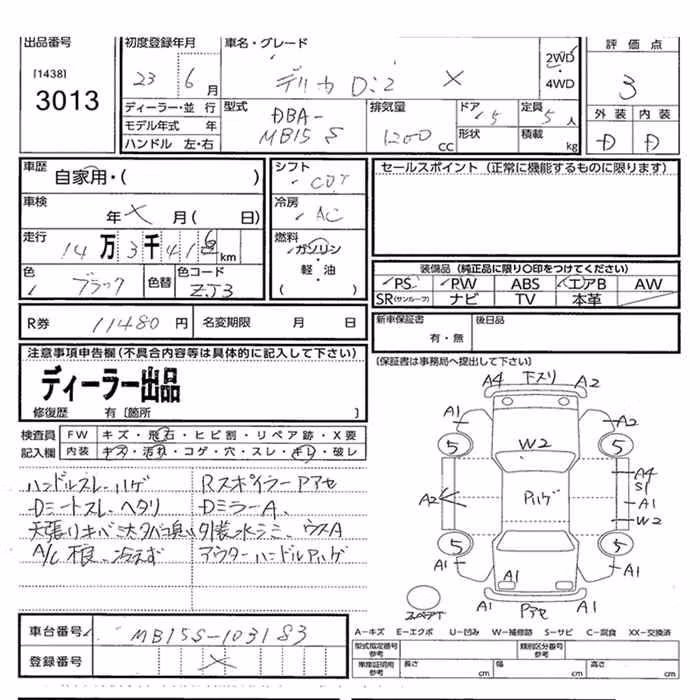 出品番号
[1438]
3013
初度登録年月
23 6 月
車名・グレード
デリカ D:2 X
2WD
4WD
評価点
3
外装 内装
D D
ディーラー・並行
モデル年式 年
ハンドル 左・右
型式
DBA-
MB15S
排気量
1200 cc
ドア 5
形状
定員 5 人
積載 kg
車歴
自家用・( )
車検
年 X 月( 日)
走行
14万3千41 km
色
ブラック
色替
色コード
ZJ3
シフト
CVT
冷房
AC
燃料
ガソリン
軽・油
( )
セールスポイント(正常に機能するものに限ります)
装備品(純正品に限り○印をつけてください)
PS PW ABS エアB AW
SR(サンルーフ) ナビ TV 本革
R券 11480 円 名変期限 月 日
新車保証書
有・無
後日品
(保証書は事務局へ提出して下さい)
注意事項申告欄(不具合内容等は具体的に記入して下さい)
ディーラー出品
修復歴 有[箇所 ]
検査員
記入欄
FW キズ・飛石・ヒビ割・リペア跡・X要
内装 キズ・汚れ・コゲ・穴・スレ・キレ・破レ
ハンドルスレ、ハゲ
Dシートスレ、ヘタリ
天張りキバミ大タバコ臭い
A/C 不良、冷えず
Rスポイラーアアセ
DミラーA、
外装水シミ、ウスA
アウターハンドルAハゲ
A4 下スリ A2
A1 A2
5 W2 5
A2 Aハゲ A4
S1
A1
W2
5 5
A1 A1
A1 A1
A1 アセ A1
スペアT
車台番号 MB15S-103183
登録番号 X
A-キズ E-エクボ U-凹み W-補修跡 S-サビ C-腐食 XX-交換済
型式指定番号
参考
類別区分番号
参考
車庫証明用
参考
長さ cm 幅 cm 高さ cm